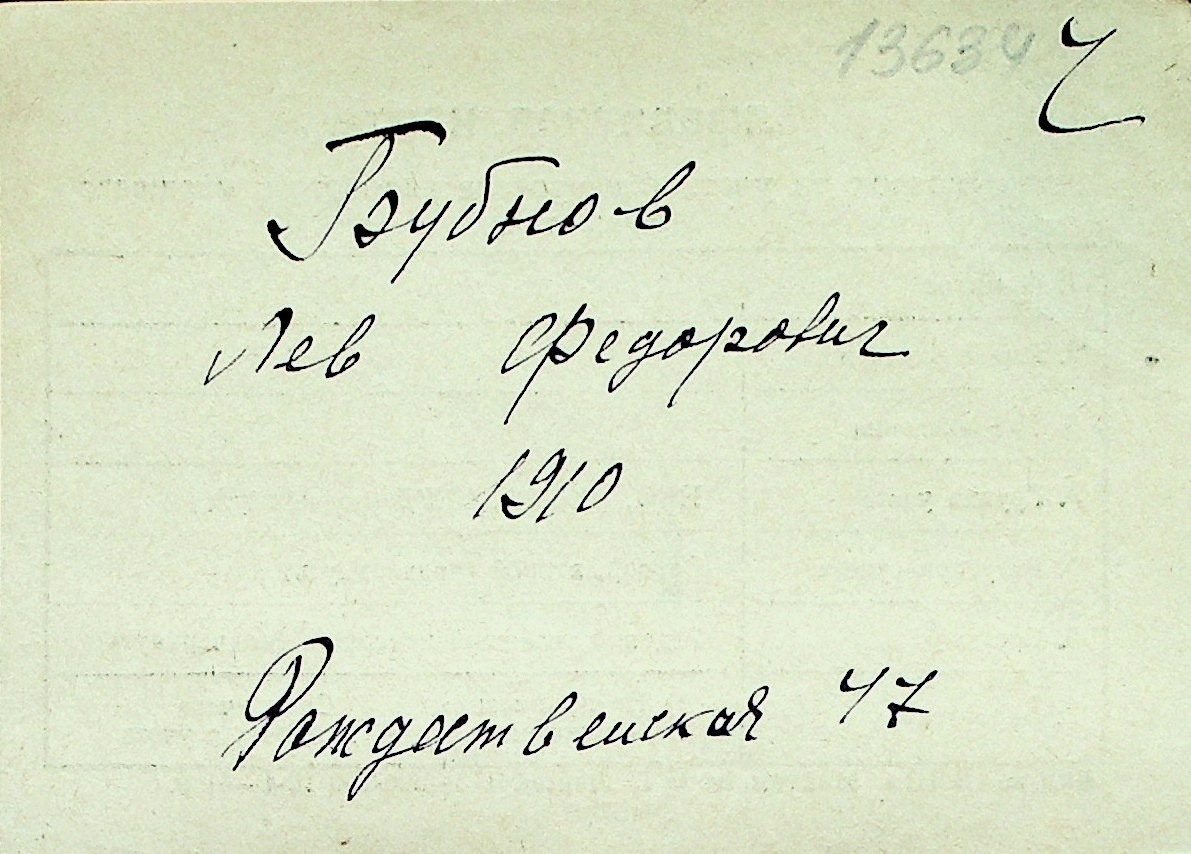 13634 Ч
Бубнов
Лев Федорович
1910
Рождественская 47